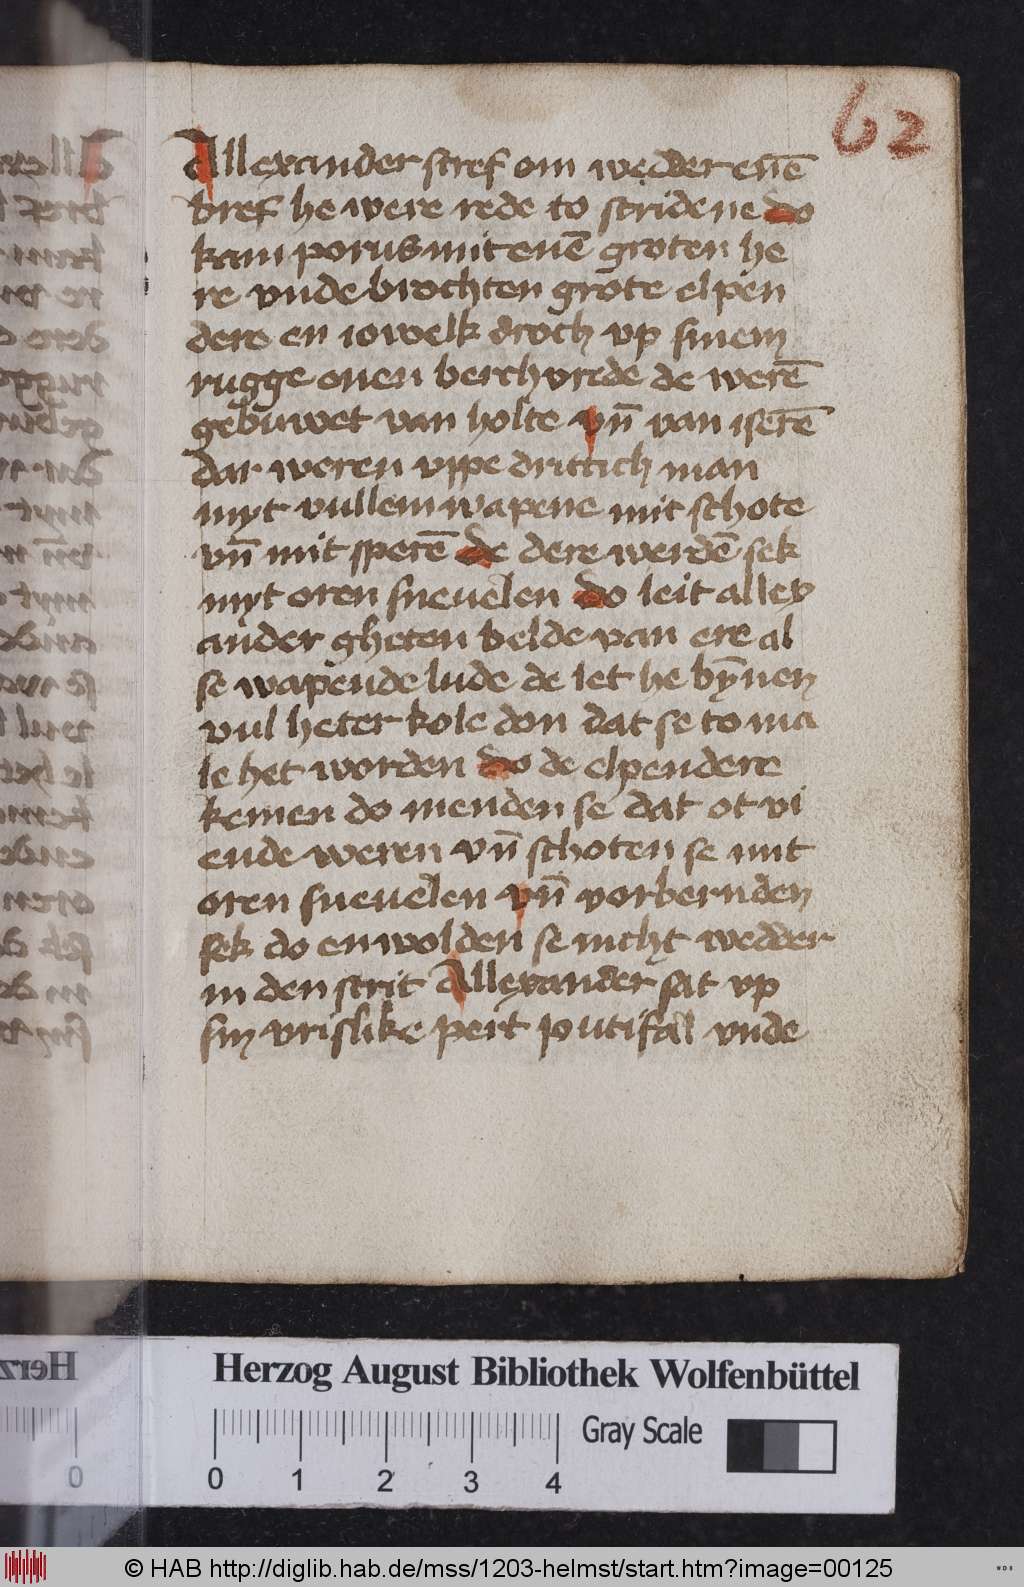 62
Allexander scref om wedder enē
bref he were rede to stridene do
kam porus mit enē groten he
re vnde brochten grote elpen
dere en iowelk droch vp sinem
rugge onen berchvrede de werē
gebuwet van holte vn̄ van iserē
dar weren vppe drittich man
myt vullem wapene mit schote
vn̄ mit sperē de dere werdē sek
myt oren sneuelen do leit allex
ander gheten belde van ere al
se wapende lude de let he bȳnen
vul heter kole don dat se to ma
le het worden do de elpendere
kemen do menden se dat ot vi
ende weren vn̄ schoten se mit
oren sneuelen vn̄ vorbernden
sek do en wolden se nicht wedder
in den strit Allexander sat vp
sin vrislike pert putifal vnde
Herzog August Bibliothek Wolfenbüttel
0 1 2 3 4
Gray Scale
© HAB http://diglib.hab.de/mss/1203-helmst/start.htm?image=00125